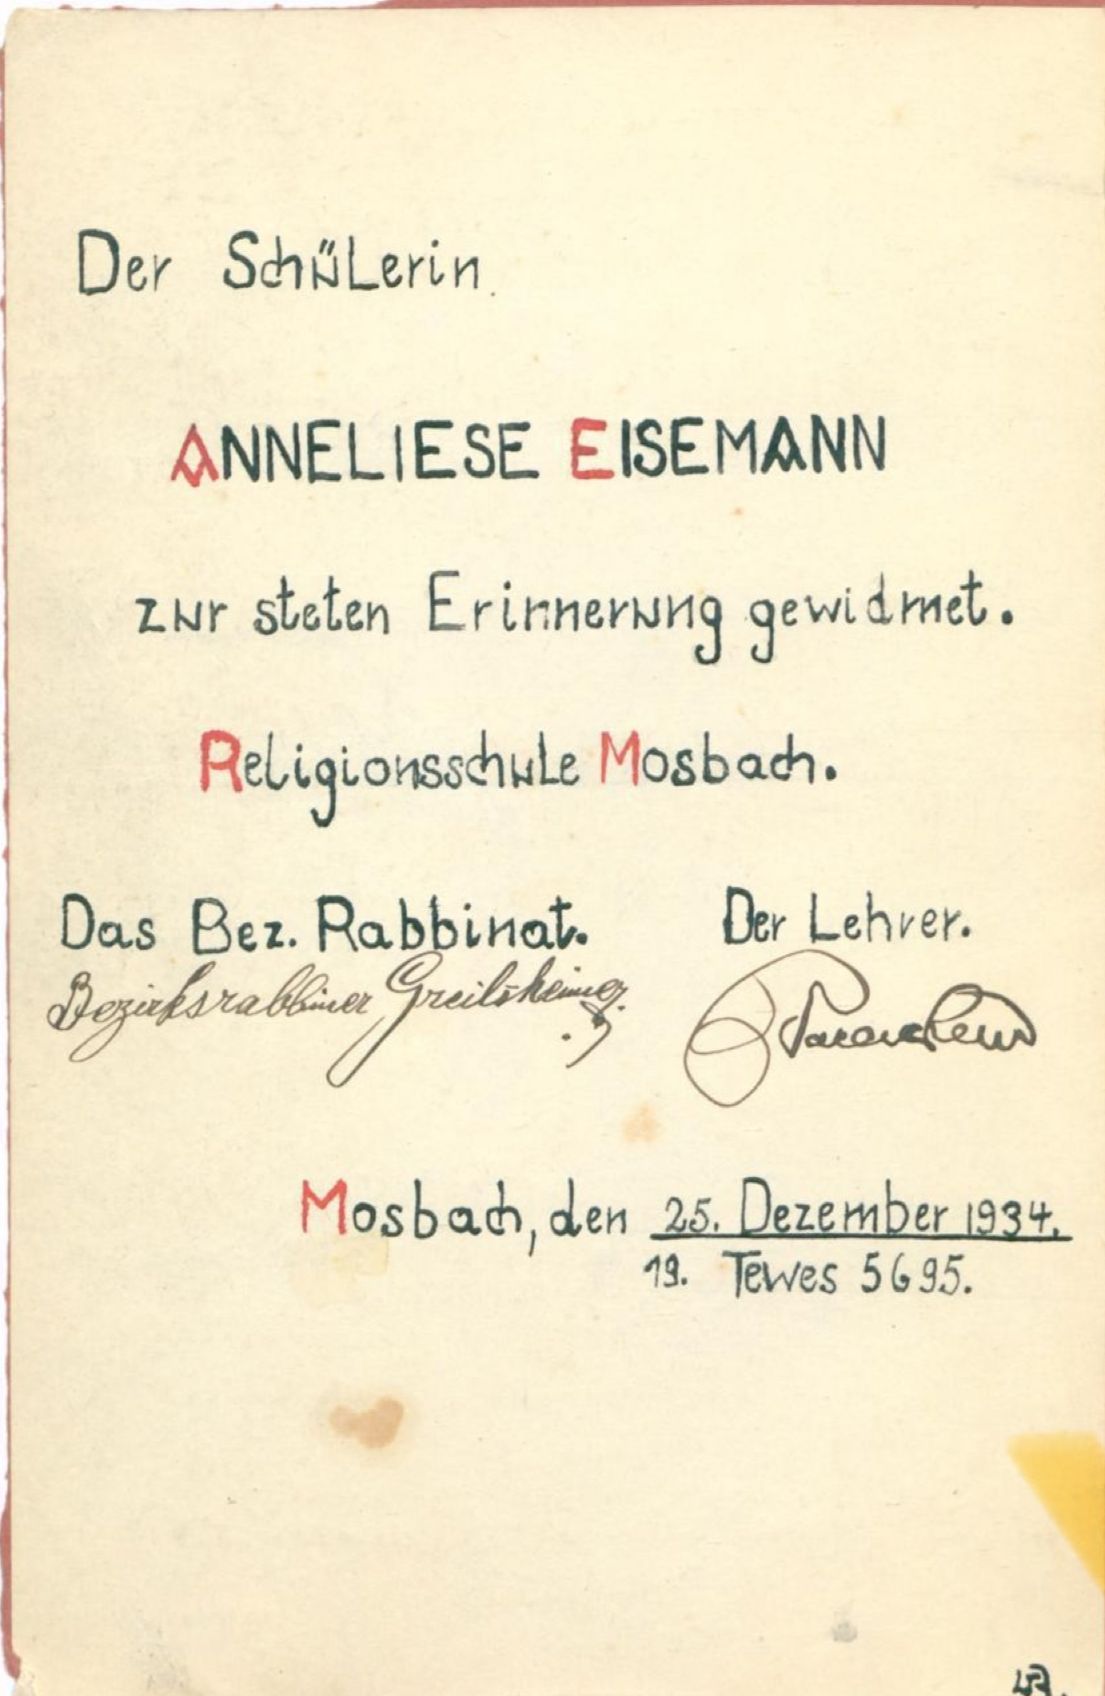 Der Schülerin
ANNELIESE EISEMANN
zur steten Erinnerung gewidmet.
Religionsschule Mosbach.
Das Bez. Rabbinat. Der Lehrer.
Bezirksrabbiner Greilsheimer.
Mosbach, den 25. Dezember 1934.
19. Tewes 5695.